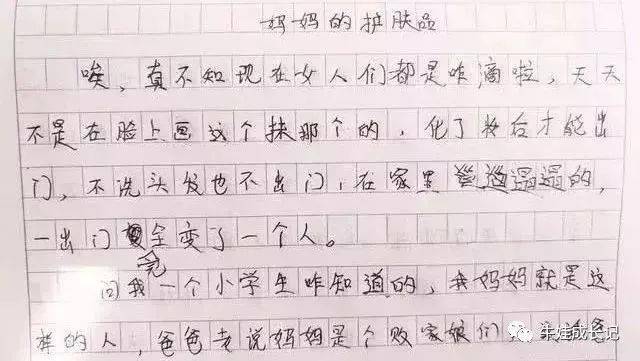 妈妈的护肤品
唉，真不知现在女人们都是咋滴啦，天天
不是在脸上画这个抹那个的，化了妆后才能出
门，不洗头发也不出门，在家里邋遢遢的，
一出门完全变了一个人。
问我一个小学生咋知道的，我妈妈就是这
样的人，爸爸老说妈妈是个败家娘们
牛娃成长记